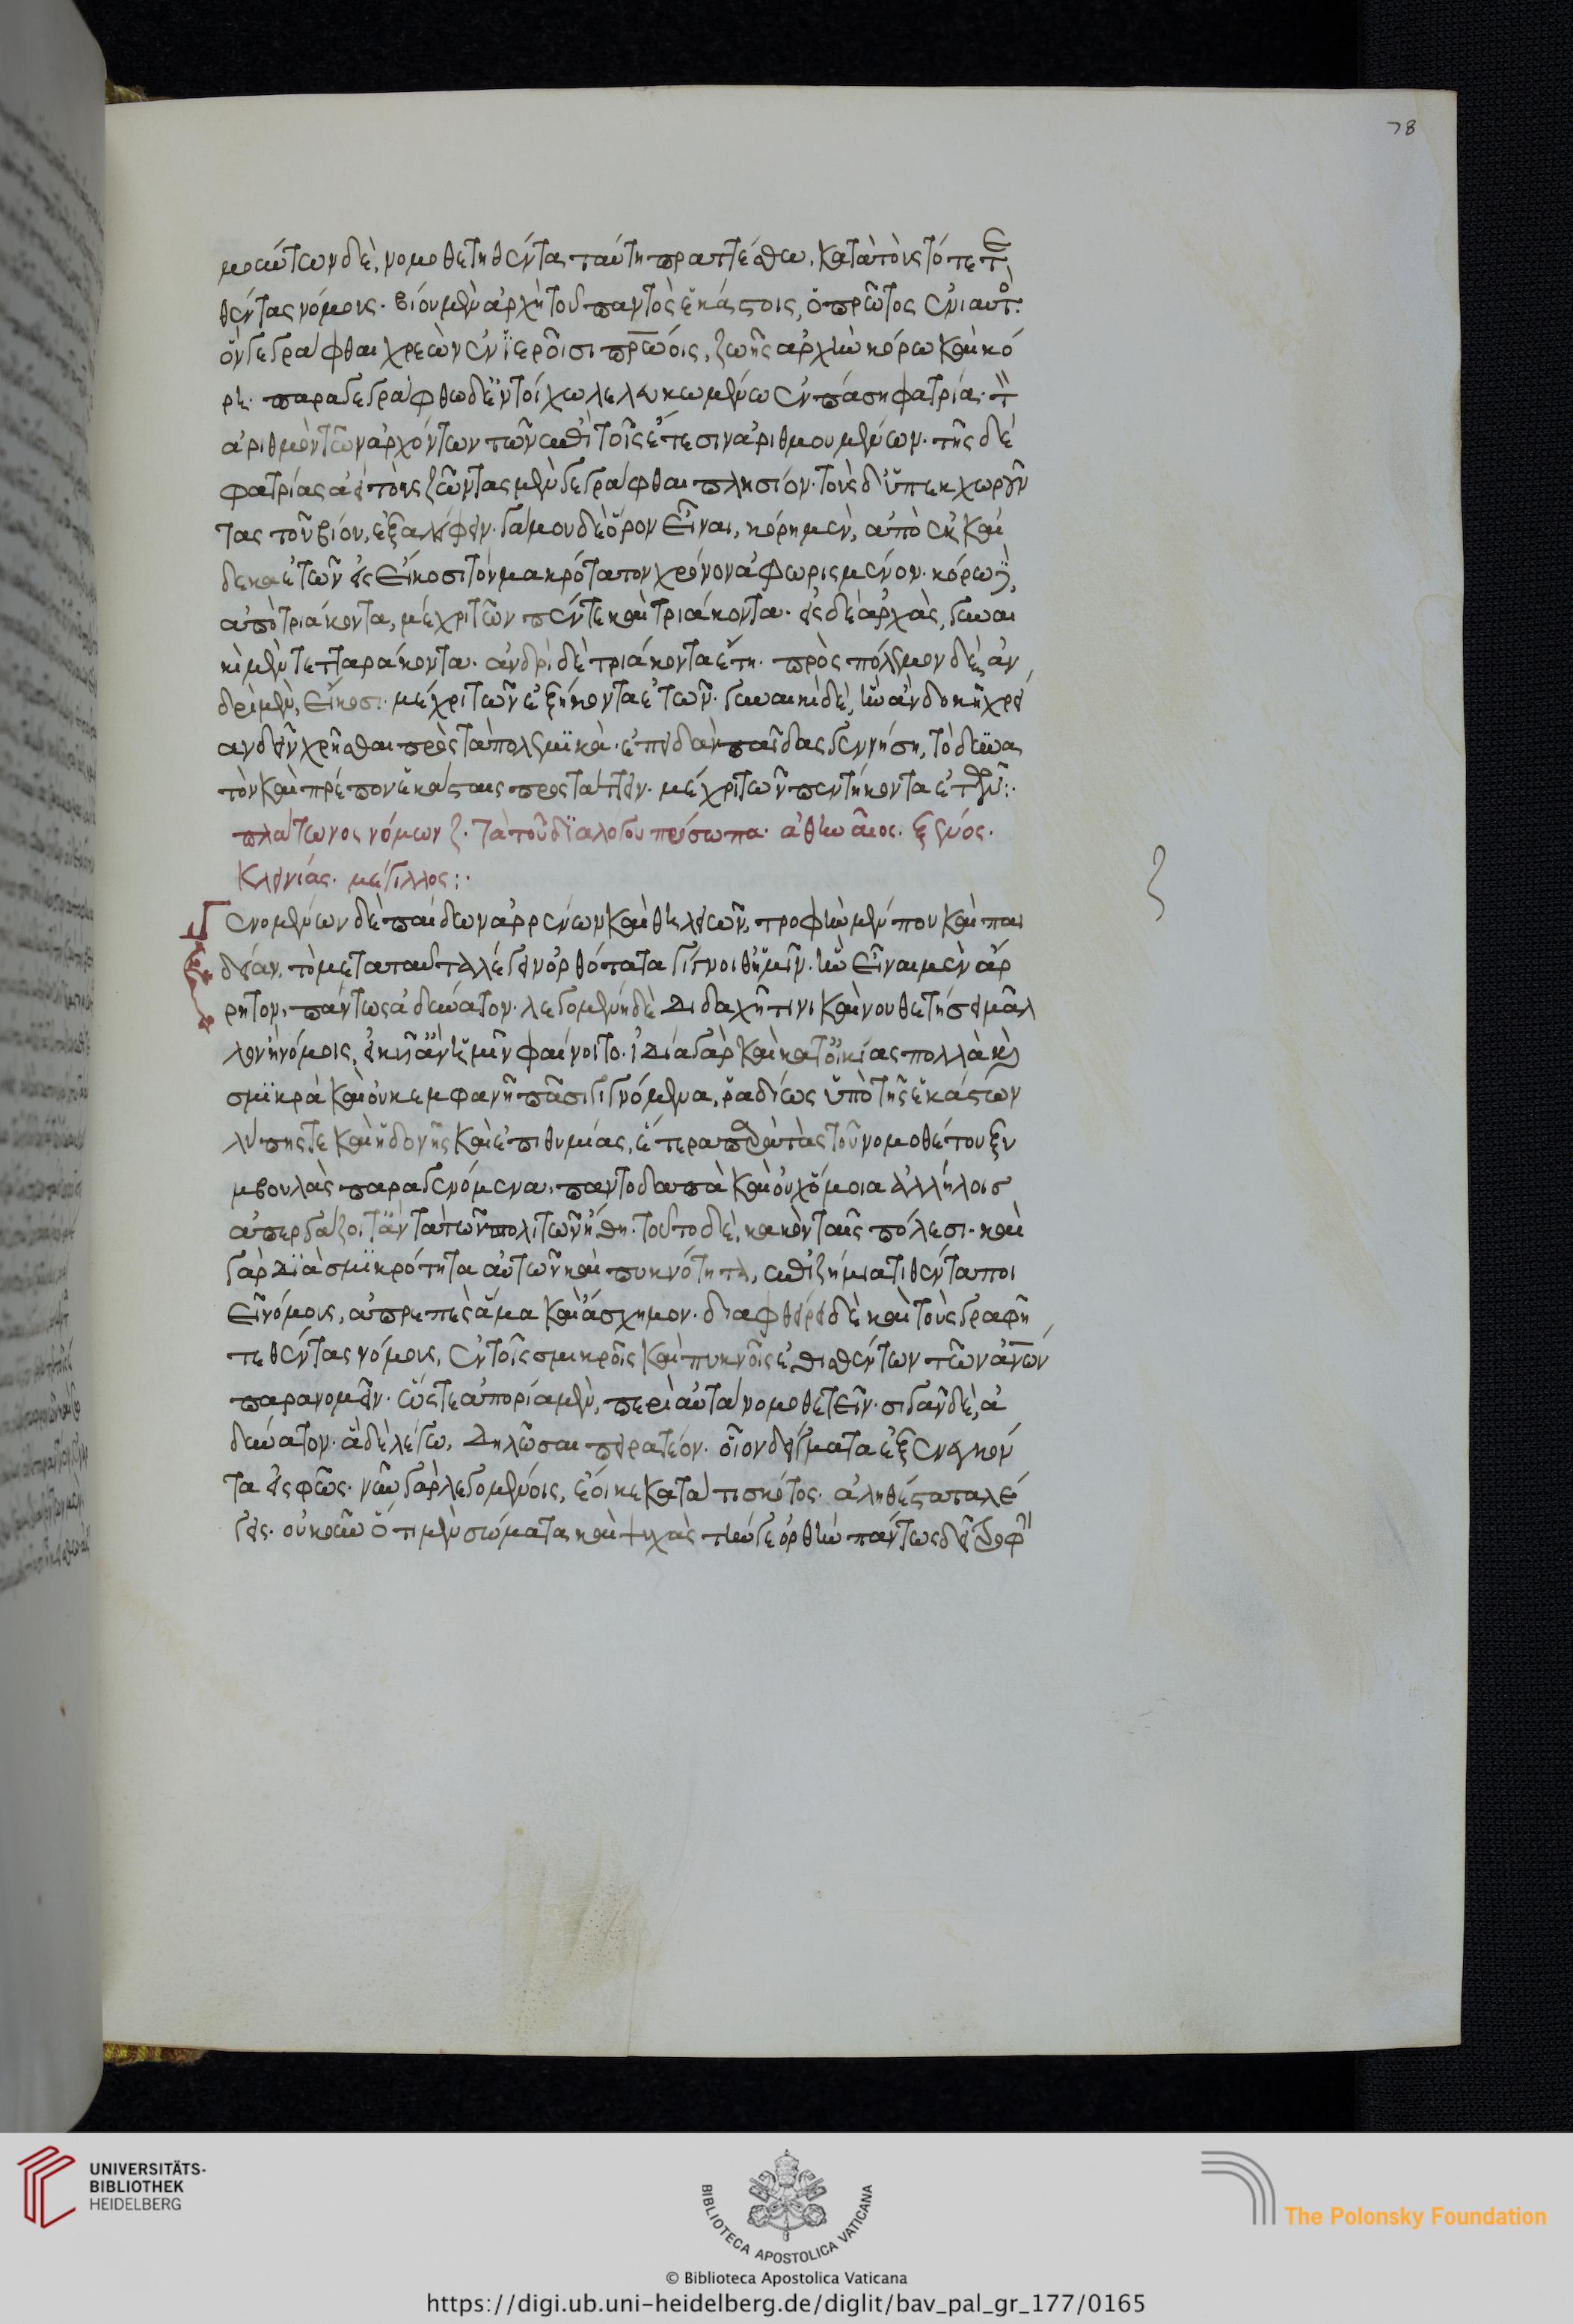 78
μοιούτων δὲ, νομοθετηθέντα ταύτη πραττέσθω, κατὰ τοὺς τότε τε
θέντας νόμους. βίου μὲν ἀρχὴ τοῦ παντὸς ἑκάστοις, ὁ πρῶτος ἐνιαυτός.
ὃν γεγράφθαι χρεὼν ἐν ἱεροῖσι πρώοις, ζωῆς ἀρχὴν κόρω καὶ κό
ρη. παραγεγράφθω δ' ἐν τοίχω λελευκωμένω ἐν πάση φατρία. τὸν
ἀριθμὸν τῶν ἀρχόντων τῶν ἐπὶ τοῖς ἔτεσιν ἀριθμουμένων. τῆς δὲ
φατρίας ἀεὶ τοὺς ζῶντας μὲν γεγράφθαι πλησίον. τοὺς δ' ὑπεκχωροῦν
τας τοῦ βίου, ἐξαλείφειν. γάμου δὲ ὅρον εἶναι, κόρη μὲν, ἀπὸ ἑκκαί
δεκα ἐτῶν εἰς εἴκοσι τὸν μακρότατον χρόνον ἀφωρισμένον. κόρω δὲ,
ἀπὸ τριάκοντα, μέχρι τῶν πέντε καὶ τριάκοντα. εἰς δὲ ἀρχὰς, γυναι
κὶ μὲν τετταράκοντα. ἀνδρὶ δὲ τριάκοντα ἔτη. πρὸς πόλεμον δὲ, ἀν
δρὶ μὲν, εἴκοσι. μέχρι τῶν ἑξήκοντα ἐτῶν. γυναικὶ δὲ, ἣν ἂν δοκῆ χρεί
αν δεῖν χρῆσθαι πρὸς τὰ πολεμικὰ. ἐπειδὰν παῖδας γεννήση, τὸ δυνα
τὸν καὶ πρέπον ἑκάσταις προστάττειν. μέχρι τῶν πεντήκοντα ἐτῶν:.
πλάτωνος νόμων ζ. τὰ τοῦ διαλόγου πρόσωπα. ἀθηναῖος. ξένος.
κλεινίας. μέγιλλος:.
ζ
Γενομένων δὲ παίδων ἀρρένων καὶ θηλειῶν, τροφὴν μέν που καὶ παι
δείαν, τὸ μετὰ ταῦτα λέγειν ὀρθότατα γίγνοιθ' ἡμῖν. ἣν εἶναι μὲν ἄρ
ρητον, πάντως ἀδύνατον. λεγομένη δὲ διδαχῆ τινι καὶ νουθετήσει μᾶλ
λον ἢ νόμοις, εἰκυῖ' ἂν ἡμῖν φαίνοιτο. ἰδία γὰρ καὶ κατ' οἰκίας πολλὰ καὶ
σμικρὰ καὶ οὐκ ἐμφανῆ πᾶσι γιγνόμενα, ῥαδίως ὑπὸ τῆς ἑκάστων
λύπης τε καὶ ἡδονῆς καὶ ἐπιθυμίας, ἕτερα παρὰ τὰς τοῦ νομοθέτου ξυ
μβουλὰς παραγενόμενα, παντοδαπὰ καὶ οὐχ ὅμοια ἀλλήλοισ
ἀπεργάζοιτ' ἂν τὰ τῶν πολιτῶν ἤθη. τοῦτο δὲ, κακὸν ταῖς πόλεσι. καὶ
γὰρ διὰ σμικρότητα αὐτῶν καὶ πυκνότητα, ἐπιζήμια τιθέντα ποι
εῖν νόμοις, ἀπρεπὲς ἅμα καὶ ἄσχημον. διαφθείρει δὲ καὶ τοὺς γραφῆ
τεθέντας νόμους, ἐν τοῖς σμικροῖς καὶ πυκνοῖς ἐθισθέντων τῶν ἀνων
παρανομεῖν. ὥστε ἀπορία μὲν, περὶ αὐτὰ νομοθετεῖν. σιγᾶν δὲ, ἀ
δύνατον. ἃ δὲ λέγω, δηλῶσαι πειρατέον. οἷον δείγματα ἐξενεγκόν
τα εἰς φῶς. νῦν γὰρ λεγομένοις, ἔοικε κατά τι σκότος. ἀληθέστατα λέ
γεις. οὐκοῦν ὅτι μὲν σώματα καὶ ψυχὰς τήν γε ὀρθὴν πάντως δεῖ τροφὴν
UNIVERSITÄTS-
BIBLIOTHEK
HEIDELBERG
BIBLIOTECA APOSTOLICA VATICANA
The Polonsky Foundation
© Biblioteca Apostolica Vaticana
https://digi.ub.uni-heidelberg.de/diglit/bav_pal_gr_177/0165